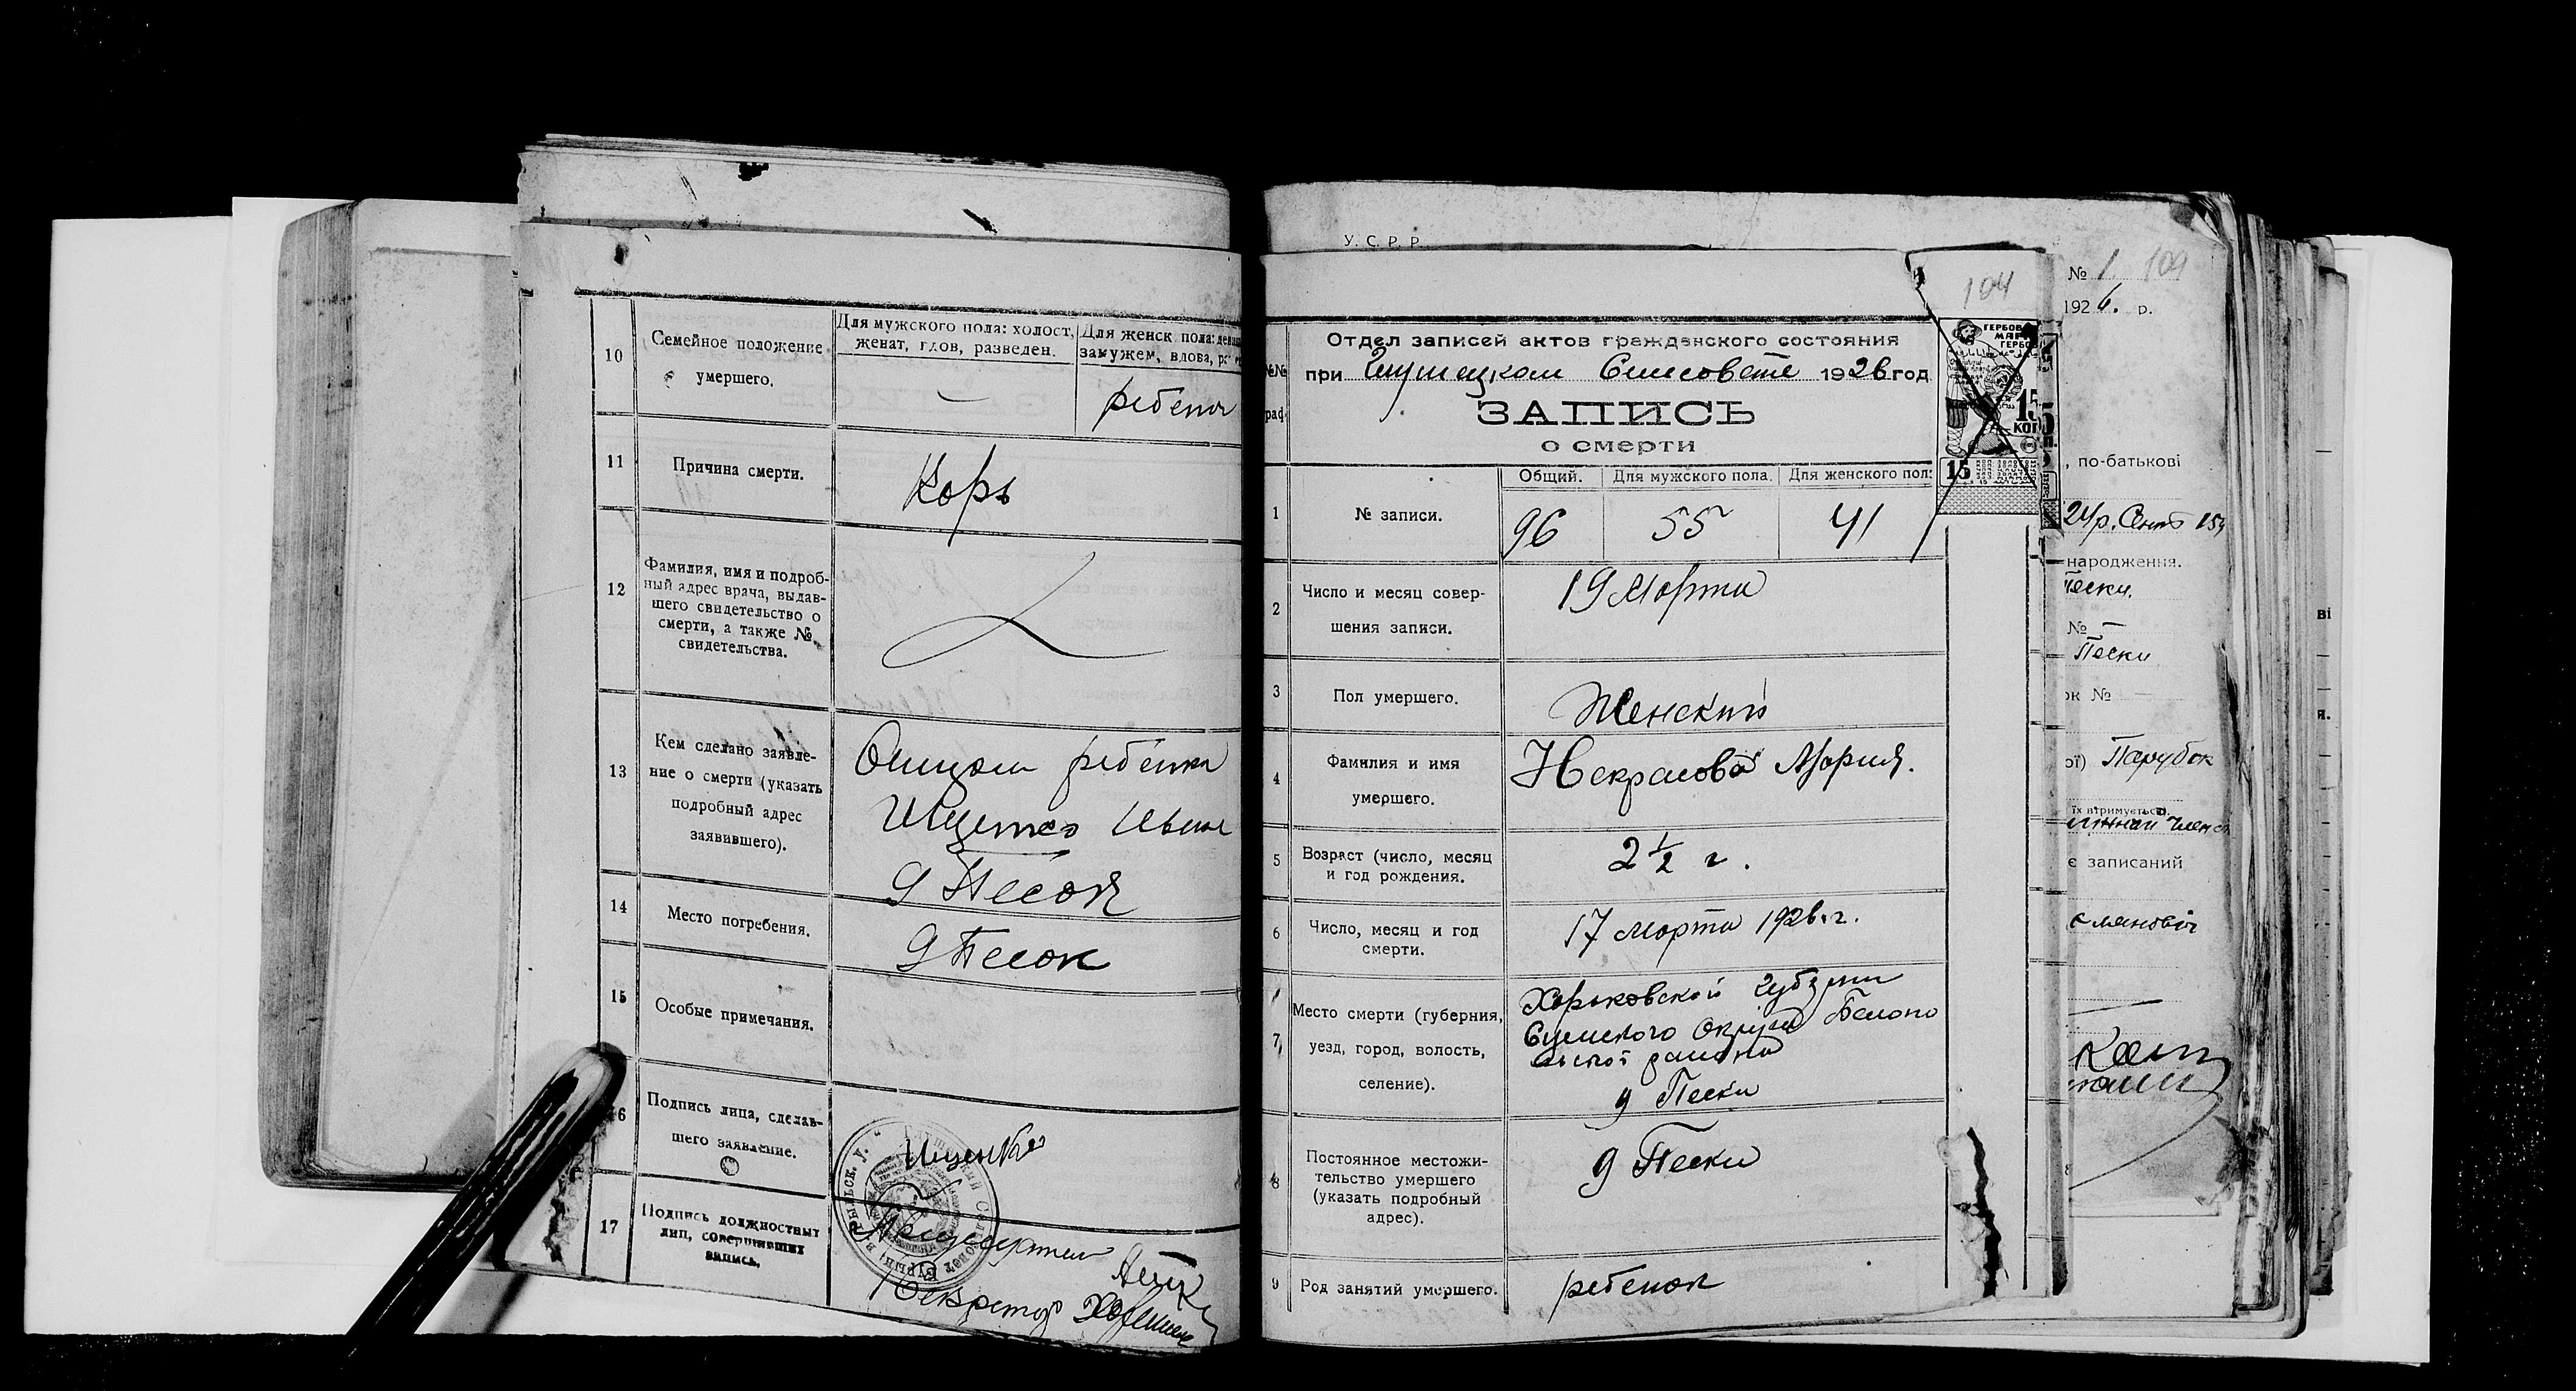 10
Семейное положение
умершего.
Для мужского пола: холост,
женат, вдов, разведен.
Для женск. пола:
замужем, вдова,
—
11
Причина смерти.
Корь
12
Фамилия, имя и подроб-
ный адрес врача, выдав-
шего свидетельство о
смерти, а также №
свидетельства.
13
Кем сделано заявле-
ние о смерти (указать
подробный адрес
заявившего).
Отцом ребенка
14
Место погребения.
д Песок
15
Особые примечания.
16
Подпись лица, сделав-
шего заявление.
17
Подпись должностных
лиц, совершивших
запись.
Секретарь
У. С. Р. Р.
104
Отдел записей актов гражданского состояния
при Сельсовете 1926 год
ЗАПИСЬ
о смерти
Общий. Для мужского пола. Для женского пол:
1
№ записи.
96 55 41
2
Число и месяц совер-
шения записи.
19 Марта
3
Пол умершего.
Женский
4
Фамилия и имя
умершего.
Некрасова Мария.
5
Возраст (число, месяц
и год рождения.
2 1/2 г.
6
Число, месяц и год
смерти.
17 марта 1926 г.
7
Место смерти (губерния,
уезд, город, волость,
селение).
Харьковской губернии
Сумского Округа Белопо
района
д Пески
8
Постоянное местожи-
тельство умершего
(указать подробный
адрес).
д Пески
9
Род занятий умершего.
ребенок
15
№ 1 109
1926. р.
, по-батькові
народження.
Пески.
№ —
Пески
ок № —
ої) Парубок
їх втримується).
є записаний